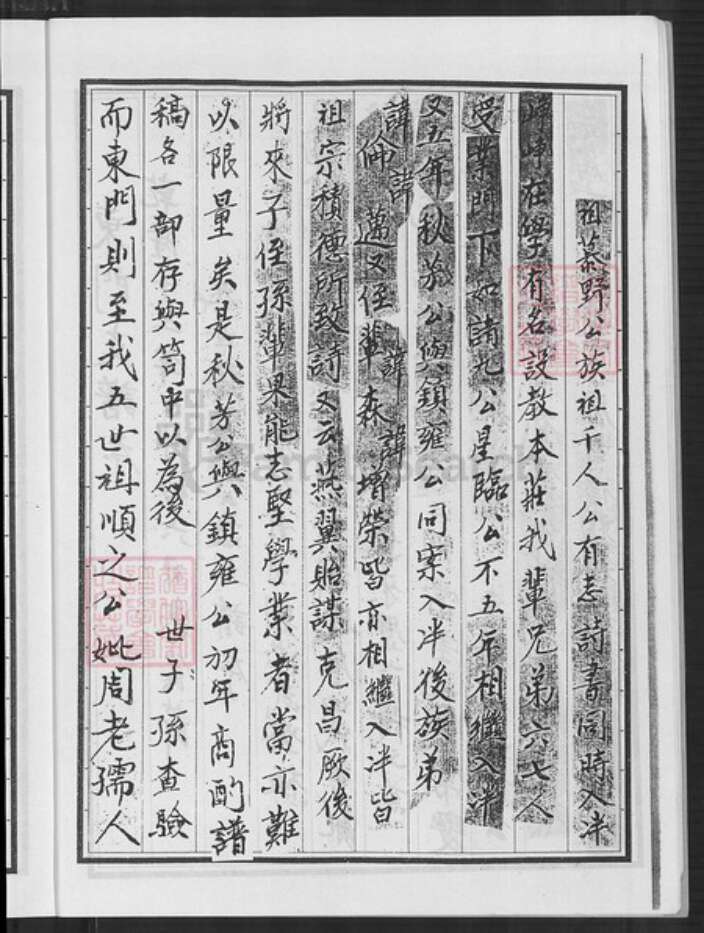 祖慕野公族祖千人公有志詩書同時入泮
崢崢在學有名設教本莊我輩兄弟六七人
受業門下如請九公星臨公不五年相繼入泮
又五年秋芳公與鎮雍公同案入泮後族弟
諱倫諱邁又侄輩諱森諱增榮皆亦相繼入泮皆
祖宗積德所致詩又云燕翼貽謀克昌厥後
將來子侄孫輩果能志堅學業者當亦難
以限量矣是秋芳公與鎮雍公初年商酌譜
稿各一部存與笥中以為後 世子孫查驗
而東門則至我五世祖順之公妣周老孺人